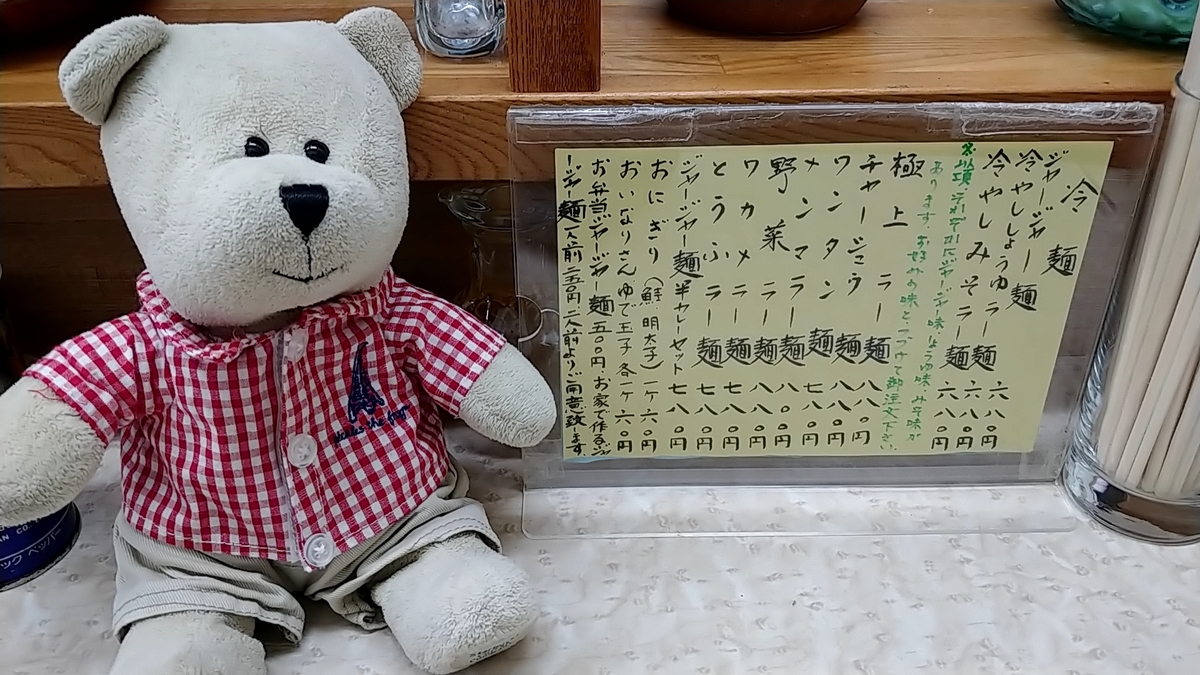 冷麺
ジャージャー麺 六八〇円
冷やししょうゆラー麺 六八〇円
冷やしみそラー麺 六八〇円
それぞれにジャージャー味しょうゆ味みそ味が
あります。お好みの味とつづけて御注文下さい。
極上ラー麺 八八〇円
チャーシュウ麺 八八〇円
ワンタン麺 七八〇円
メンマラー麺 八〇円
野菜ラー麺 八八〇円
ワカメラー麺 七八〇円
とうふラー麺 七八〇円
ジャージャー麺半カレーセット 七八〇円
おにぎり(鮭 明太子)一ケ 六〇円
おいなりさんゆで玉子 各一ケ 六〇円
お弁当ジャージャー麺五〇〇円。お家で作るジャ
ージャー麺一人前二五〇円二人前よりご用意致します。
ックペッパー